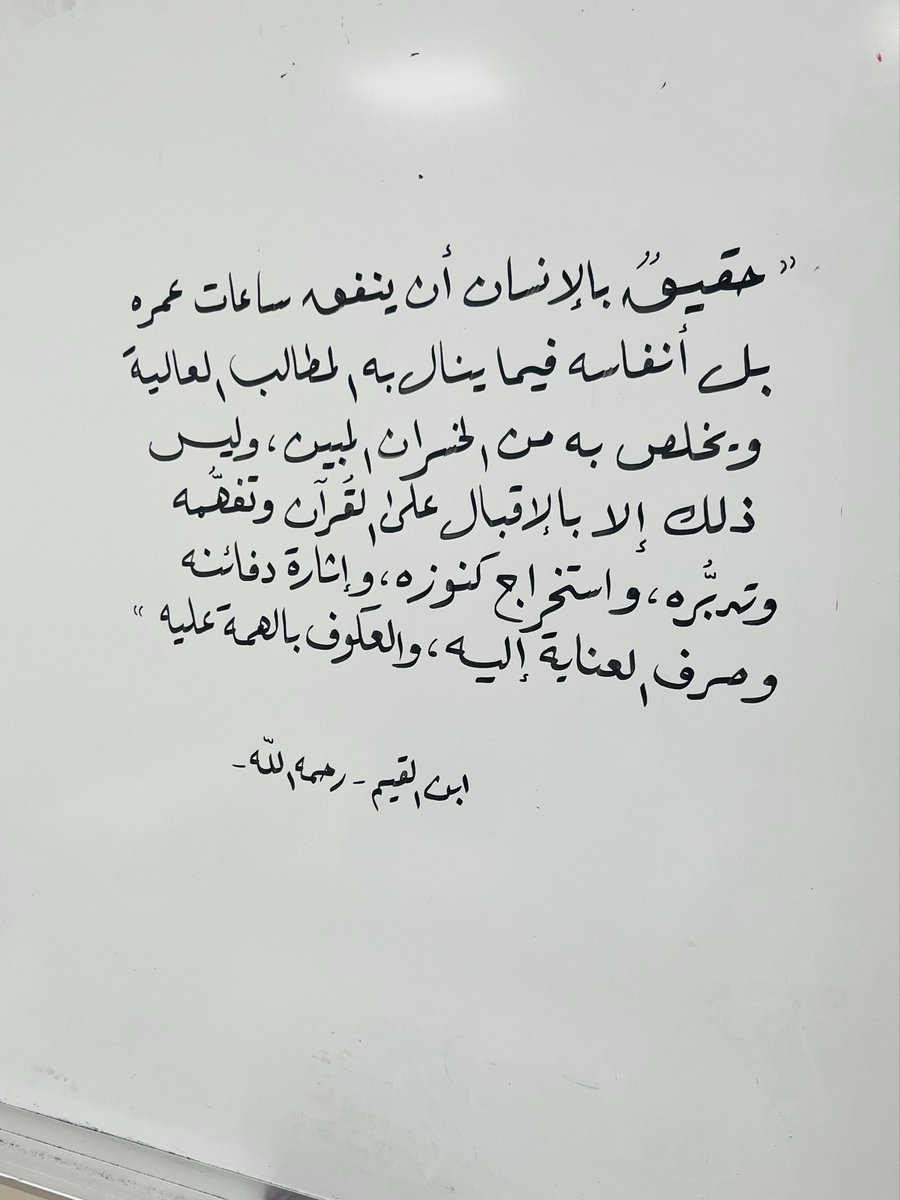 "حقيقٌ بالإنسان أن ينفق ساعات عمره
بل أنفاسه فيما ينال به المطالب العالية
ويخلص به من الخسران المبين، وليس
ذلك إلا بالإقبال على القُرآن وتفهُّمه
وتدبُّره، واستخراج كنوزه، وإثارة دفائنه
وصرف العناية إليه، والعكوف بالهمة عليه"
ابن القيم - رحمه اللّه -